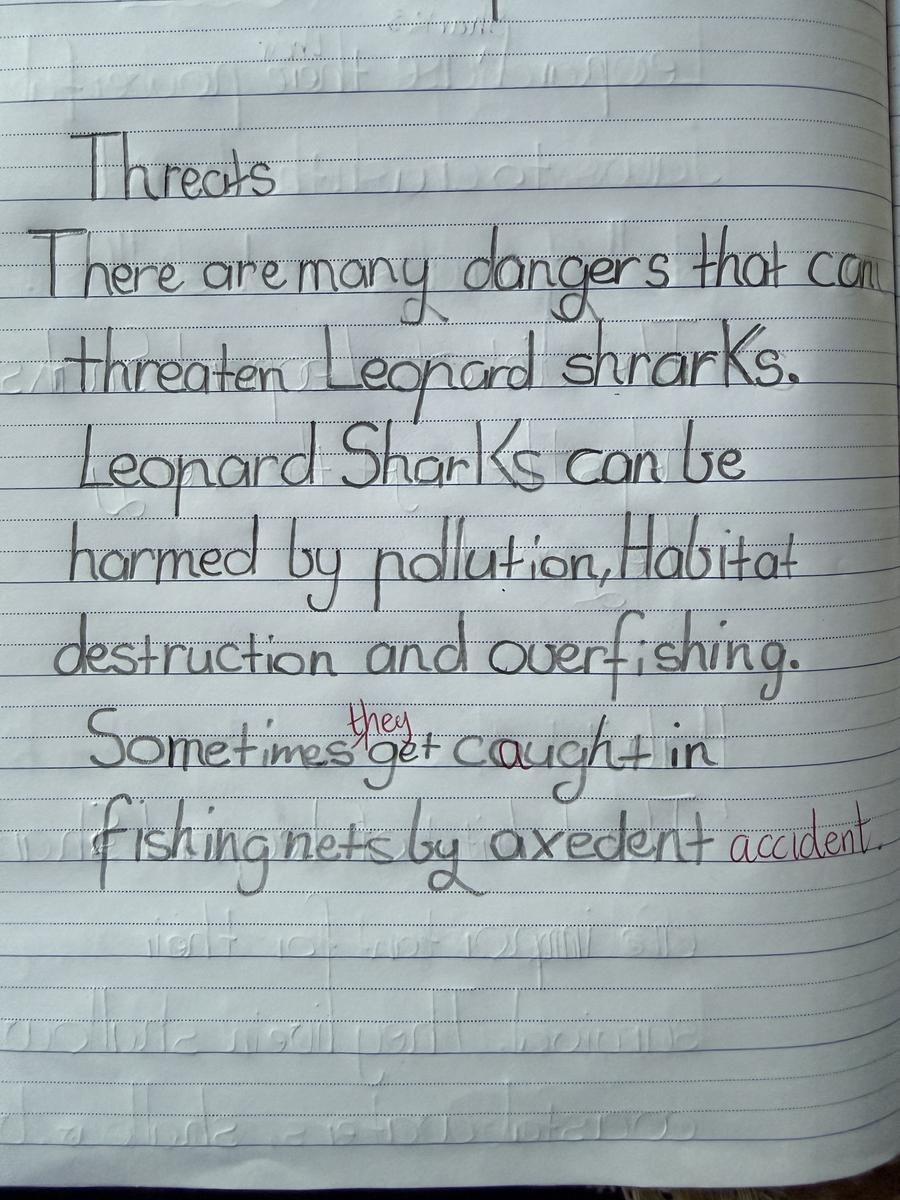 Threats
There are many dangers that can
threaten Leopard shrarks.
Leopard Sharks can be
harmed by pollution, Habitat
destruction and overfishing.
Sometimes they get caught in
fishing nets by axedent accident.